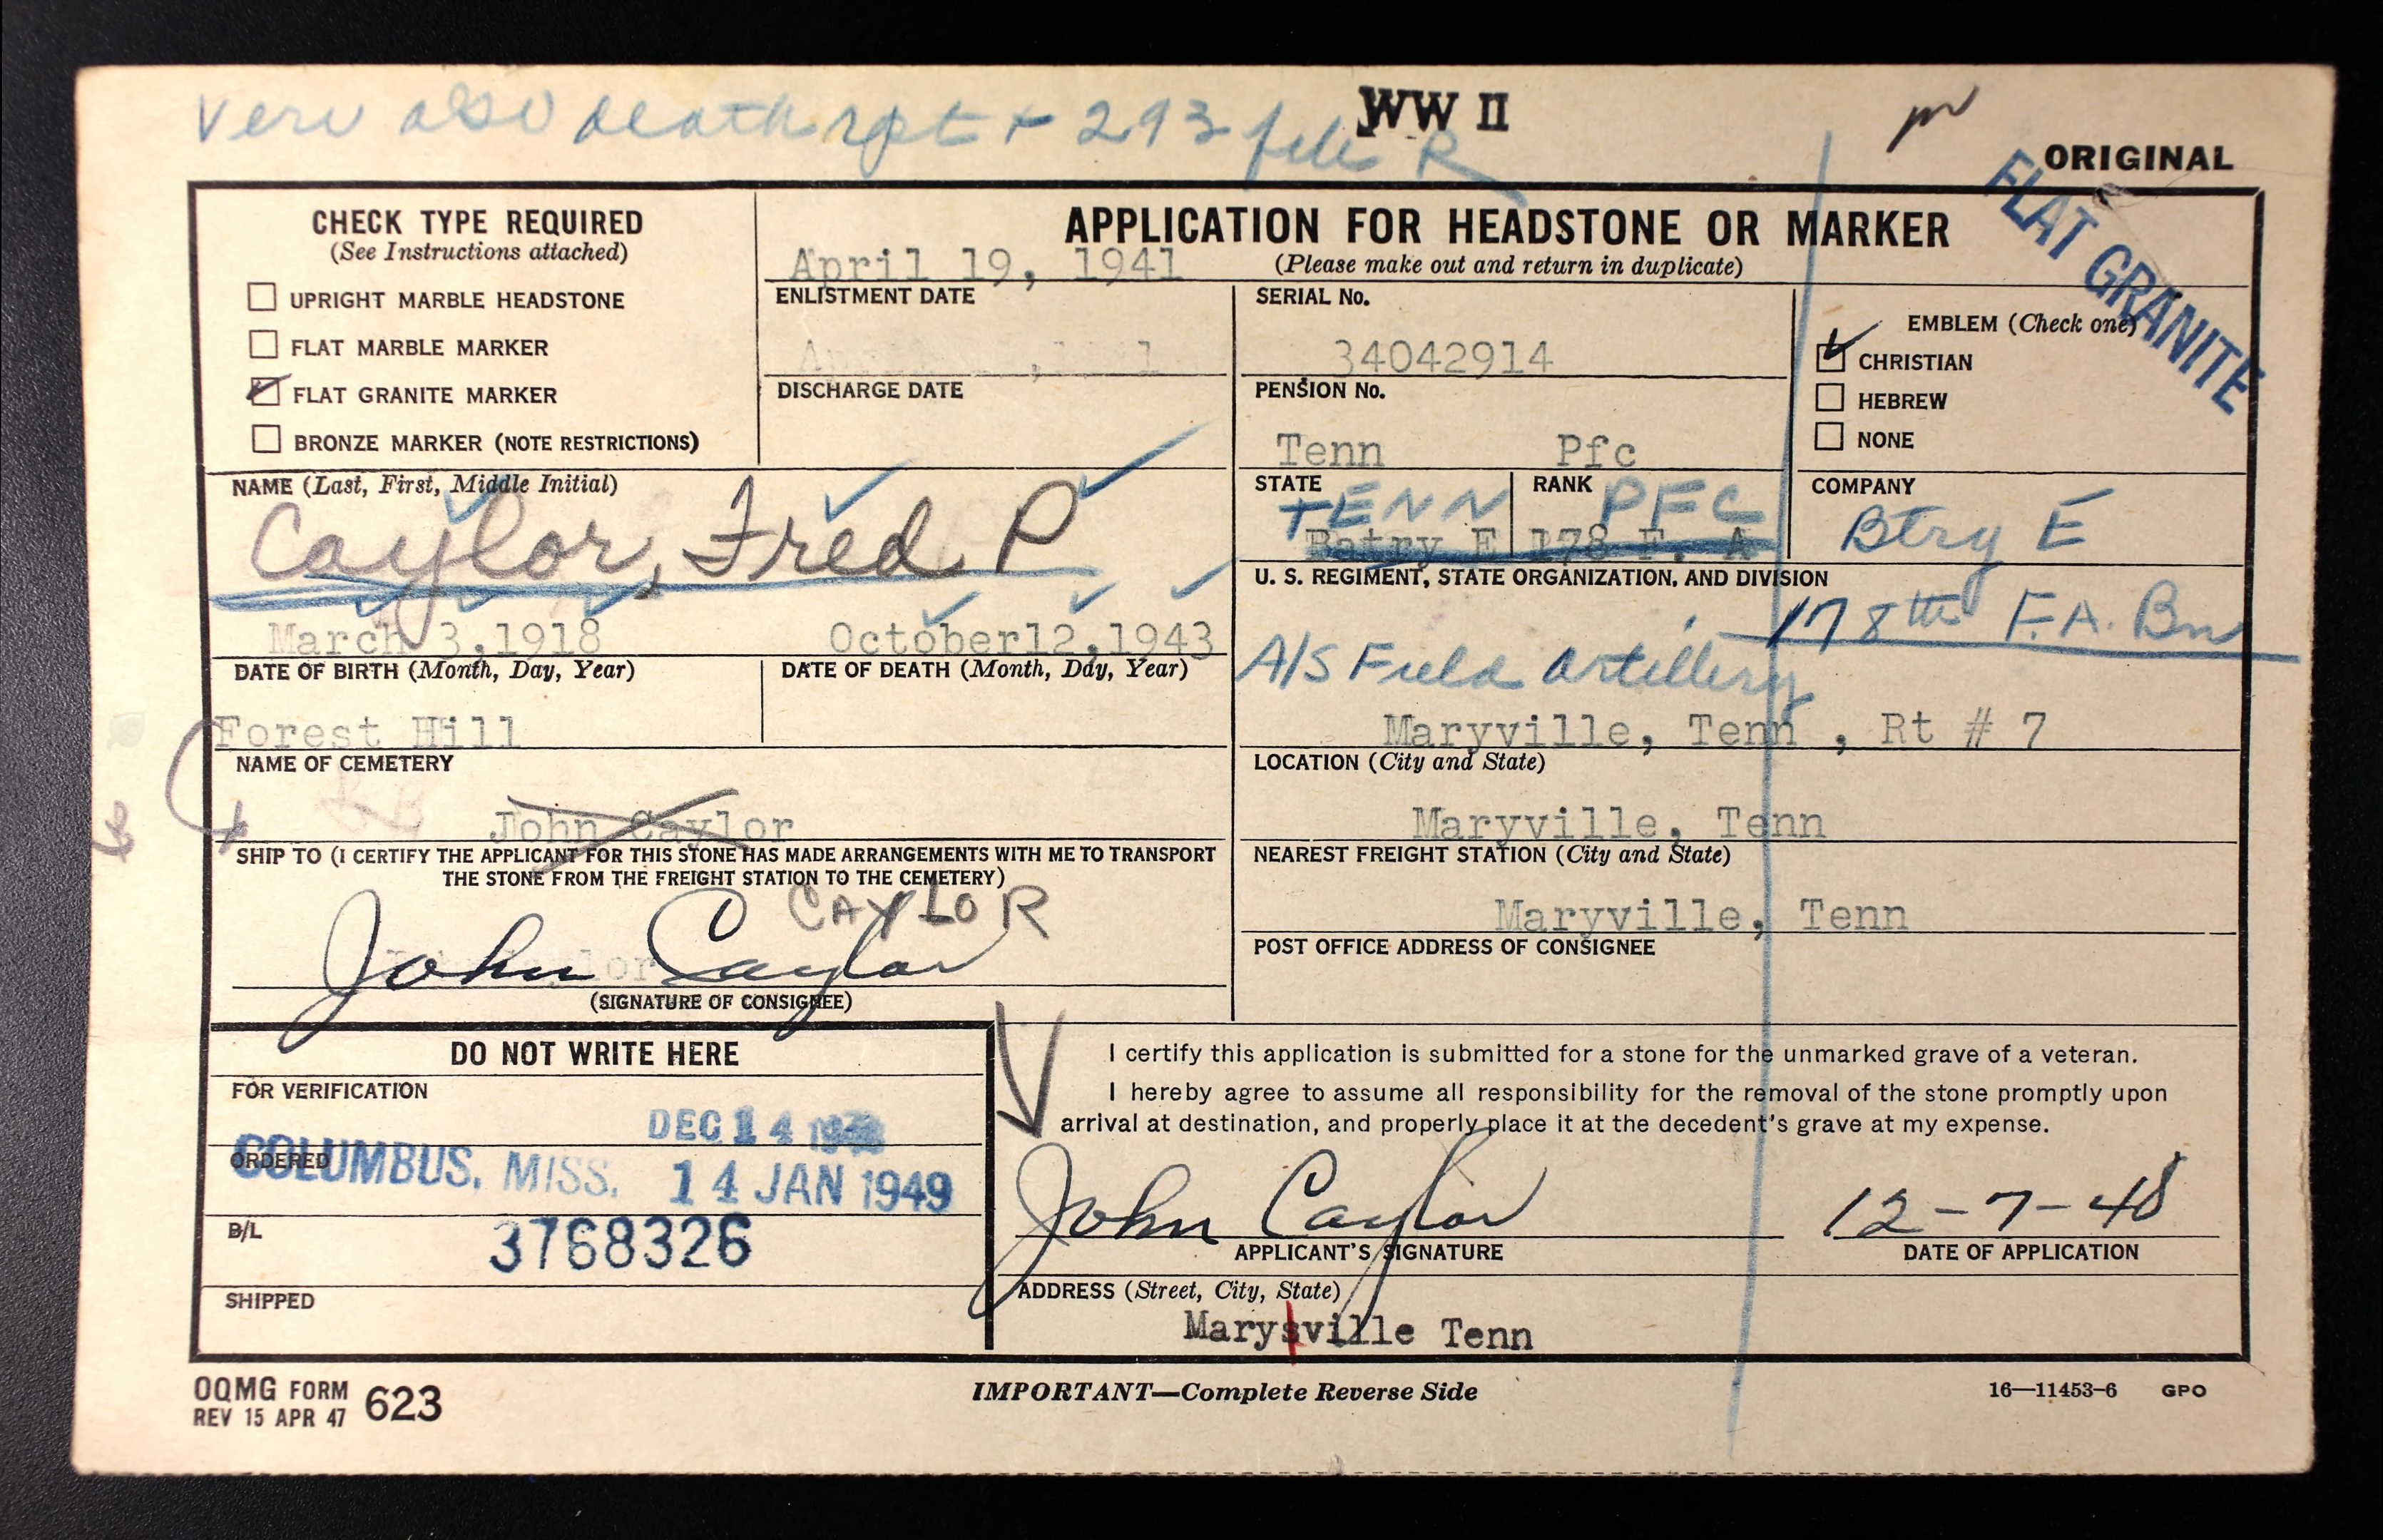 Veri also death rpt + 293 file R
WW II
ORIGINAL
FLAT GRANITE
CHECK TYPE REQUIRED
(See Instructions attached)
UPRIGHT MARBLE HEADSTONE
FLAT MARBLE MARKER
FLAT GRANITE MARKER
BRONZE MARKER (NOTE RESTRICTIONS)
APPLICATION FOR HEADSTONE OR MARKER
(Please make out and return in duplicate)
April 19, 1941
ENLISTMENT DATE
DISCHARGE DATE
SERIAL No.
34042914
PENSION No.
EMBLEM (Check one)
CHRISTIAN
HEBREW
NONE
Tenn Pfc
STATE
TENN
RANK
PFC
COMPANY
Btry E
NAME (Last, First, Middle Initial)
Caylor, Fred P
Batry E 178 F. A
U. S. REGIMENT, STATE ORGANIZATION, AND DIVISION
178th F.A. Bn
A/S Field Artillery
March 3,1918
DATE OF BIRTH (Month, Day, Year)
October12,1943
DATE OF DEATH (Month, Day, Year)
Forest Hill
NAME OF CEMETERY
Maryville, Tenn , Rt # 7
LOCATION (City and State)
John Caylor
SHIP TO (I CERTIFY THE APPLICANT FOR THIS STONE HAS MADE ARRANGEMENTS WITH ME TO TRANSPORT
THE STONE FROM THE FREIGHT STATION TO THE CEMETERY)
Maryville, Tenn
NEAREST FREIGHT STATION (City and State)
CAYLOR
John Caylor
(SIGNATURE OF CONSIGNEE)
Maryville, Tenn
POST OFFICE ADDRESS OF CONSIGNEE
DO NOT WRITE HERE
FOR VERIFICATION
DEC 14
ORDERED
COLUMBUS, MISS. 14 JAN 1949
B/L
3768326
SHIPPED
I certify this application is submitted for a stone for the unmarked grave of a veteran.
I hereby agree to assume all responsibility for the removal of the stone promptly upon
arrival at destination, and properly place it at the decedent's grave at my expense.
John Caylor
APPLICANT'S SIGNATURE
12-7-48
DATE OF APPLICATION
ADDRESS (Street, City, State)
Marysville Tenn
OQMG FORM 623
REV 15 APR 47
IMPORTANT—Complete Reverse Side
16—11453-6 GPO